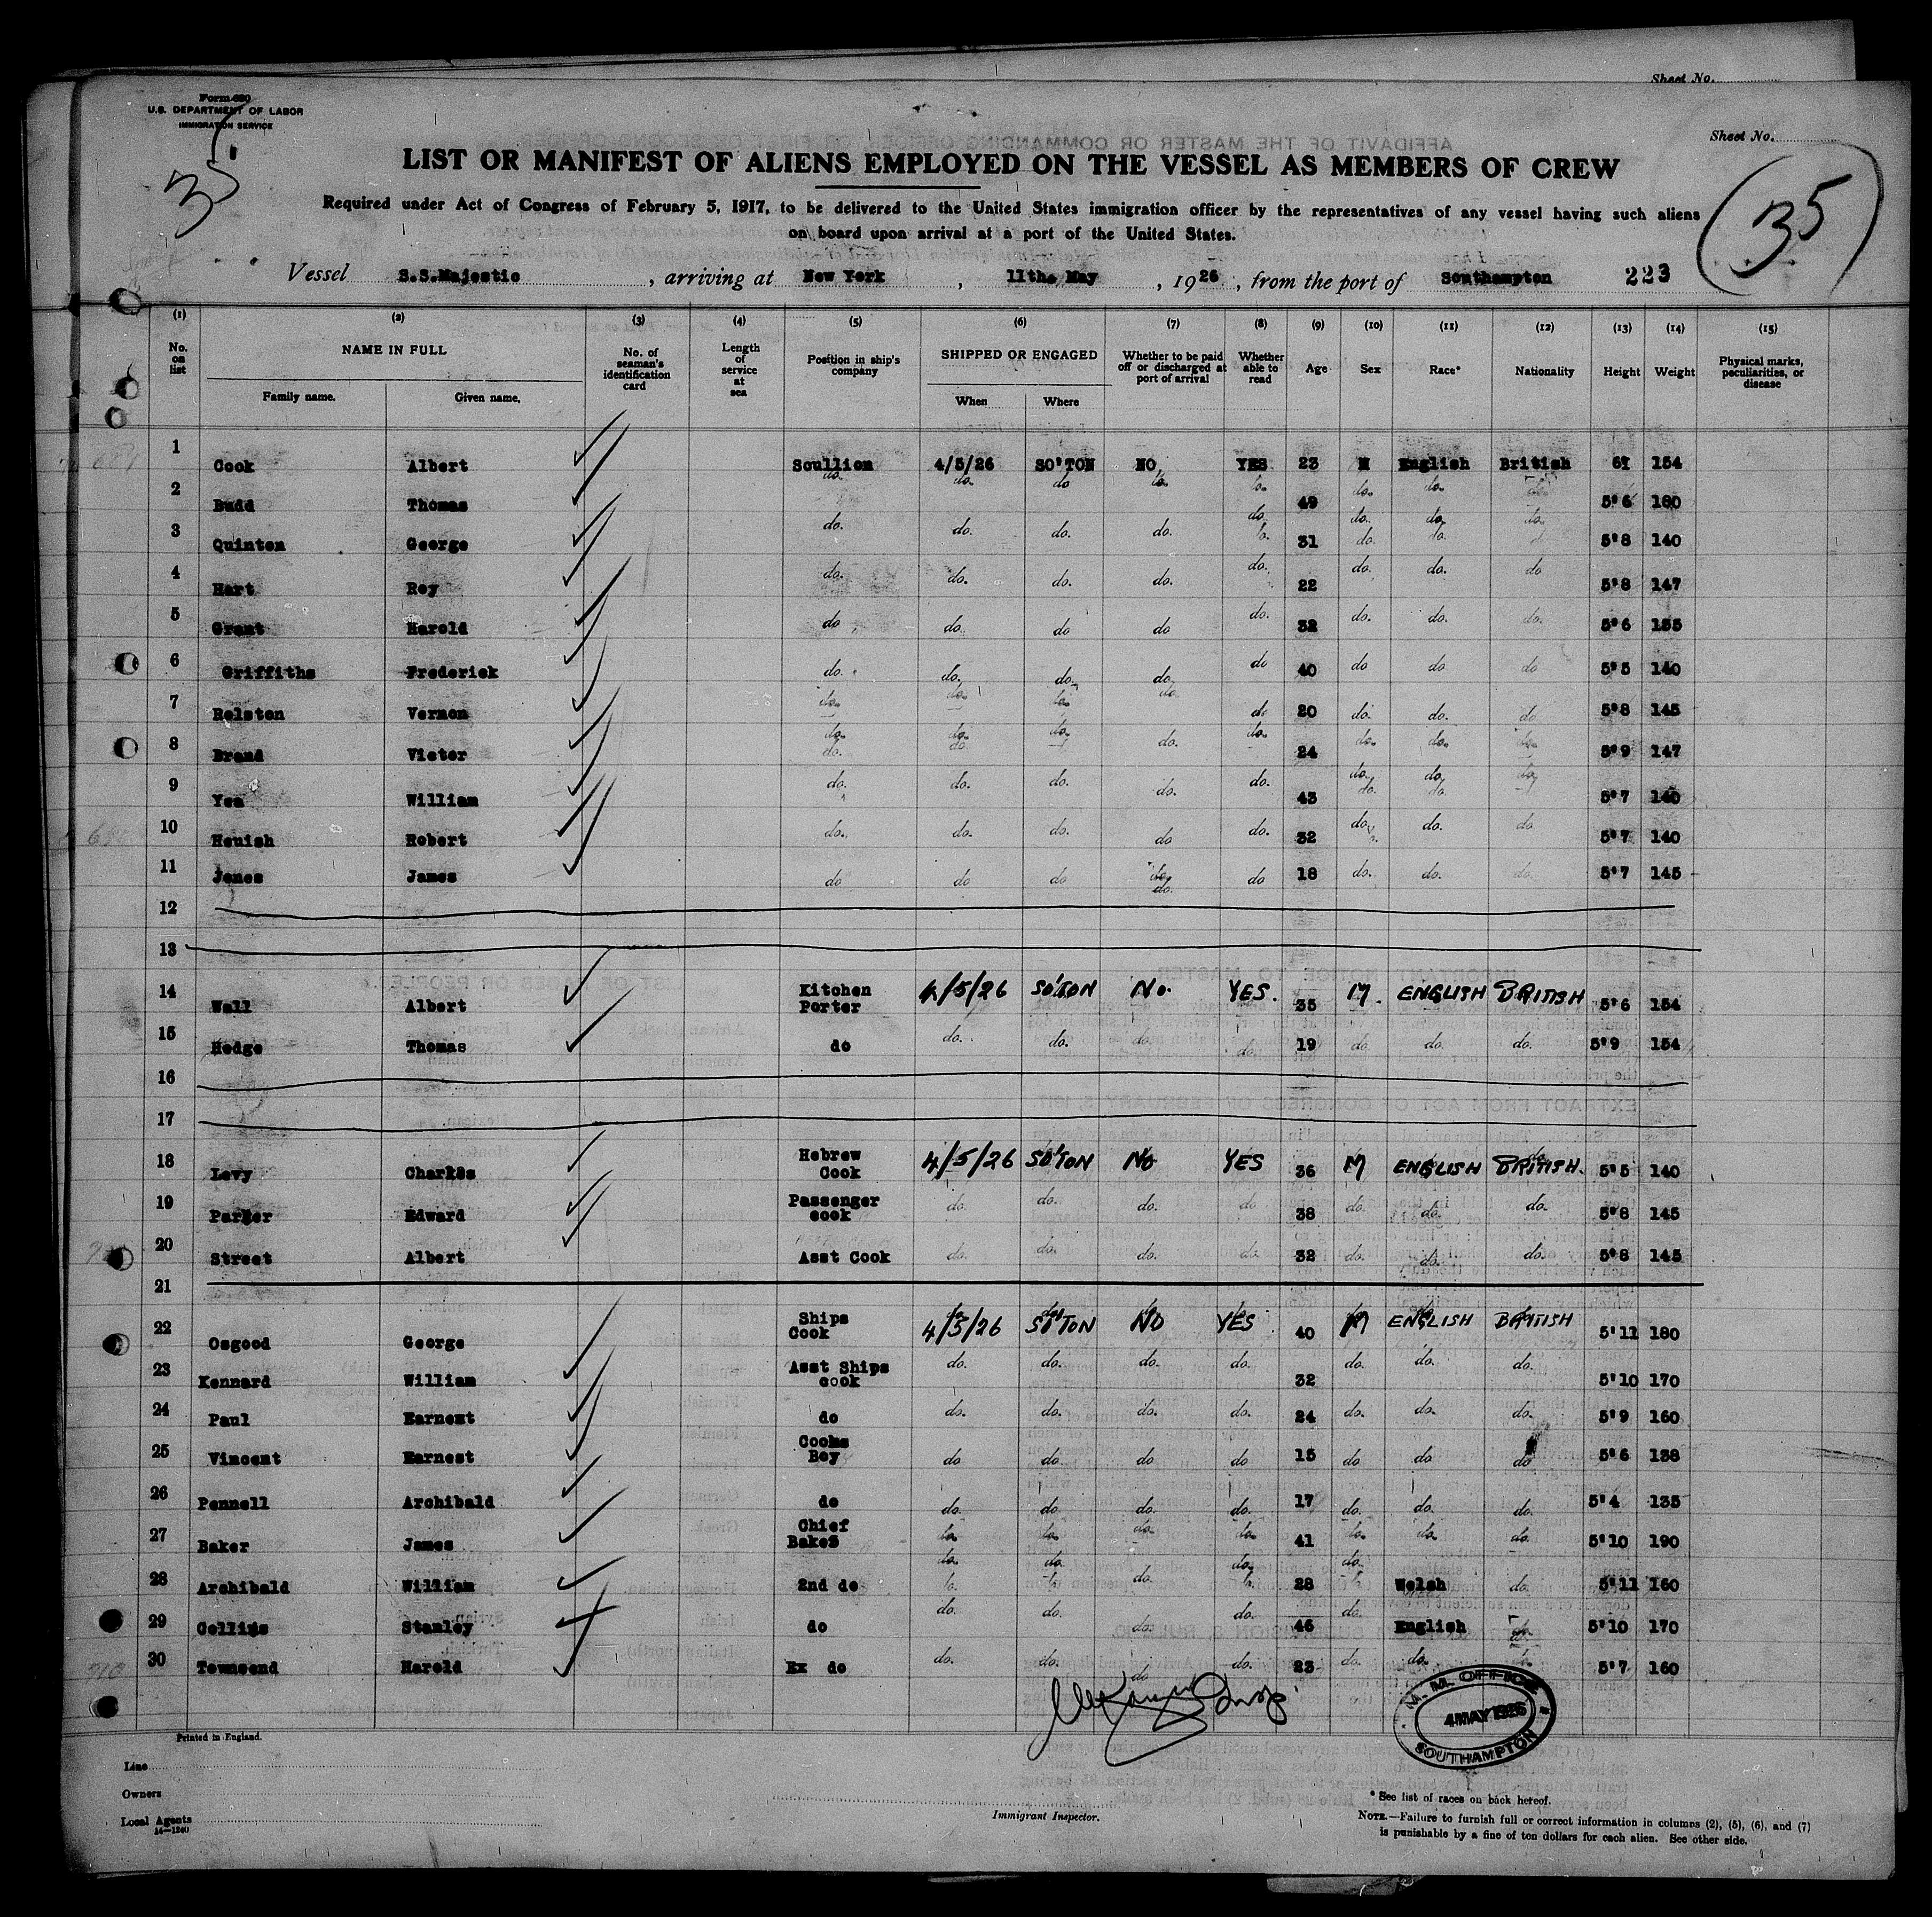 Sheet No.
Form 680
U.S. DEPARTMENT OF LABOR
IMMIGRATION SERVICE
Sheet No.
35
LIST OR MANIFEST OF ALIENS EMPLOYED ON THE VESSEL AS MEMBERS OF CREW
Required under Act of Congress of February 5, 1917, to be delivered to the United States immigration officer by the representatives of any vessel having such aliens
on board upon arrival at a port of the United States.
35
Vessel S.S.Majestic, arriving at New York, 11the May, 1926, from the port of Southampton 223
(1) (2) (3) (4) (5) (6) (7) (8) (9) (10) (11) (12) (13) (14) (15)
No. on list NAME IN FULL No. of seaman's identification card Length of service at sea Position in ship's company SHIPPED OR ENGAGED Whether to be paid off or discharged at port of arrival Whether able to read Age Sex Race* Nationality Height Weight Physical marks, peculiarities, or disease
Family name. Given name. When Where
1 Cook Albert Scullion 4/5/26 SO'TON NO YES 23 M English British 6' 154
2 Budd Thomas do. do. do do. do. 49 do. do. do. 5'6 180
3 Quinton George do. do. do. do. do. 31 do. do. do. 5'8 140
4 Hart Roy do. do. do. do. do. 22 do. do. do 5'8 147
5 Grant Harold do. do. do do do. 32 do. do. do. 5'6 155
6 Griffiths Frederick do. do. do. do. do 40 do do do 5'5 140
7 Relston Vernon do. do. do. do do 20 do. do. do 5'8 145
8 Brand Victor do. do. do. do. do. 24 do. do. do. 5'9 147
9 Yea William do. do. do. do. do. 43 do. do. do. 5'7 140
10 Heuish Robert do. do. do. do do. 32 do. do. do 5'7 140
11 Jones James do do do do. do 18 do. do. do. 5'7 145
12
13
14 Wall Albert Kitchen Porter 4/5/26 SO'TON No. YES. 35 M. ENGLISH BRITISH 5'6 154
15 Hedge Thomas do do. do. do. do. 19 do. do. do. 5'9 154
16
17
18 Levy Charles Hebrew Cook 4/5/26 SO'TON No YES 36 M ENGLISH BRITISH. 5'5 140
19 Parker Edward Passenger cook do. do. do. do 38 do. do. do. 5'8 145
20 Street Albert Asst Cook do. do. do. do. 32 do. do. do. 5'8 145
21
22 Osgood George Ships Cook 4/5/26 SO'TON NO YES 40 M ENGLISH BRITISH 5'11 180
23 Kennard William Asst Ships cook do. do. do. do. 32 do. do. do. 5'10 170
24 Paul Earnest do do. do. do. do. 24 do. do. do. 5'9 160
25 Vincent Earnest Cooks Boy do do. do do 15 do do do 5'6 138
26 Pennell Archibald do do. do. do. do. 17 do. do. do. 5'4 135
27 Baker James Chief Baker do. do. do. do. 41 do. do. do. 5'10 190
28 Archibald William 2nd do do. do. do. do. 28 do. Welsh do. 5'11 160
29 Collins Stanley do do. do. do. do. 46 do. English do. 5'10 170
30 Townsend Harold Ex do do. do. do do. 23 do. do. do. 5'7 160
M. M. OFFICE
4 MAY 1926
SOUTHAMPTON
Printed in England.
Line
Owners
Local Agents
14—1240
Immigrant Inspector.
* See list of races on back hereof.
NOTE.—Failure to furnish full or correct information in columns (2), (5), (6), and (7)
is punishable by a fine of ten dollars for each alien. See other side.